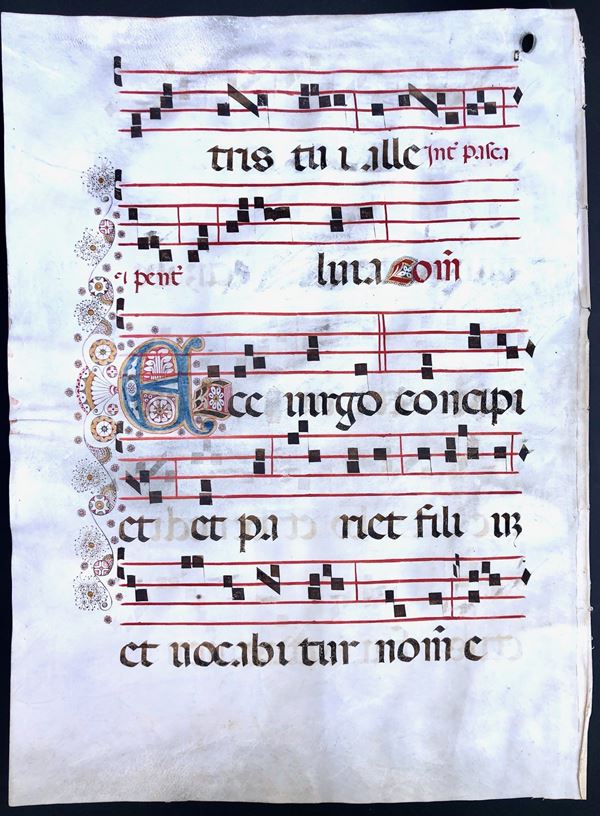 tris tu i alle Int̄ pasca
et pent̄ luia Com̄
Ecce uirgo concipi
et et pa riet fili uꝫ
et uocabi tur nom̄ e